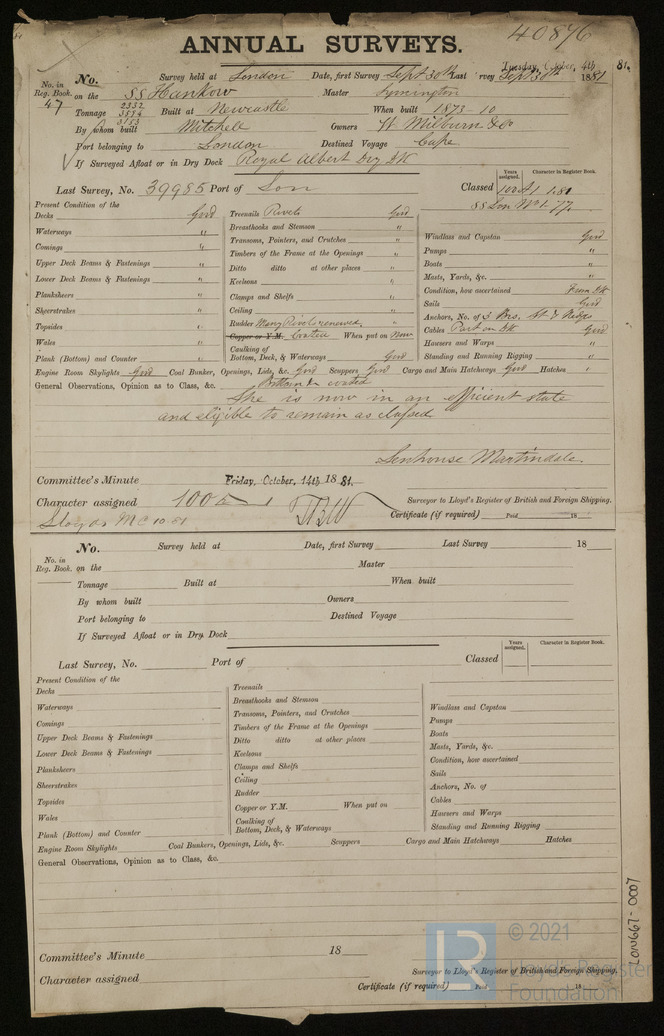 40876
ANNUAL SURVEYS.
Tuesday, October, 4th 81.
No. in Reg. Book. No. Survey held at London Date, first Survey Sept 30th Last Survey Sept 30th 1881
47 on the SS Hankow Master Symington
Tonnage 2332 3594 3153 Built at Newcastle When built 1873-10
By whom built Mitchell Owners W. Milburn & Co
Port belonging to London Destined Voyage Cape
If Surveyed Afloat or in Dry Dock Royal Albert Dry Dk
Last Survey, No. 39985 Port of Lon Classed Years assigned. Character in Register Book. 100A1 1.81
SS Lon No 1-77
Present Condition of the
Decks Good Treenails Rivets Good
Waterways " Breasthooks and Stemson " Windlass and Capstan Good
Comings " Transoms, Pointers, and Crutches " Pumps "
Upper Deck Beams & Fastenings " Timbers of the Frame at the Openings " Boats "
Lower Deck Beams & Fastenings " Ditto ditto at other places " Masts, Yards, &c. "
Planksheers " Keelsons " Condition, how ascertained From Dk
Sheerstrakes " Clamps and Shelfs " Sails Good
Topsides " Ceiling " Anchors, No. of 3 Brs, St & Kedges
Wales " Rudder Many Rivets renewed Cables Part on Dk Good
Plank (Bottom) and Counter " Copper or Y.M. Coated When put on Now Hawsers and Warps "
Caulking of Bottom, Deck, & Waterways Good Standing and Running Rigging "
Engine Room Skylights Good Coal Bunker, Openings, Lids, &c. Good Scuppers Good Cargo and Main Hatchways Good Hatches "
General Observations, Opinion as to Class, &c. Bottom coated
She is now in an efficient state
and eligible to remain as classed
Senhouse Martindale
Committee's Minute Friday, October, 14th 1881.
Character assigned 100A1 Surveyor to Lloyd's Register of British and Foreign Shipping.
Lloyds MC 10 81 Certificate (if required) Paid 18
No. Survey held at Date, first Survey Last Survey 18
No. in Reg. Book. on the Master
Tonnage Built at When built
By whom built Owners
Port belonging to Destined Voyage
If Surveyed Afloat or in Dry Dock
Last Survey, No. Port of Classed Years assigned. Character in Register Book.
Present Condition of the
Decks Treenails
Waterways Breasthooks and Stemson Windlass and Capstan
Comings Transoms, Pointers, and Crutches Pumps
Upper Deck Beams & Fastenings Timbers of the Frame at the Openings Boats
Lower Deck Beams & Fastenings Ditto ditto at other places Masts, Yards, &c.
Planksheers Keelsons Condition, how ascertained
Sheerstrakes Clamps and Shelfs Sails
Topsides Ceiling Anchors, No. of
Wales Rudder Cables
Plank (Bottom) and Counter Copper or Y.M. When put on Hawsers and Warps
Caulking of Bottom, Deck, & Waterways Standing and Running Rigging
Engine Room Skylights Coal Bunkers, Openings, Lids, &c. Scuppers Cargo and Main Hatchways Hatches
General Observations, Opinion as to Class, &c.
Committee's Minute 18
Character assigned Surveyor to Lloyd's Register of British and Foreign Shipping.
Certificate (if required) Paid 18
LON667-0007
LR © 2021
Lloyd's Register
Foundation